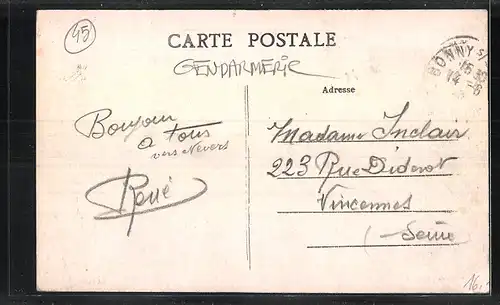 45
CARTE POSTALE
GENDARMERIE
BONNY S/
15
14 - 6
Adresse
Bonjour
a tous
vers Nevers
René
Madame Inclair
223 Rue Diderot
Vincennes
(Seine
16.-